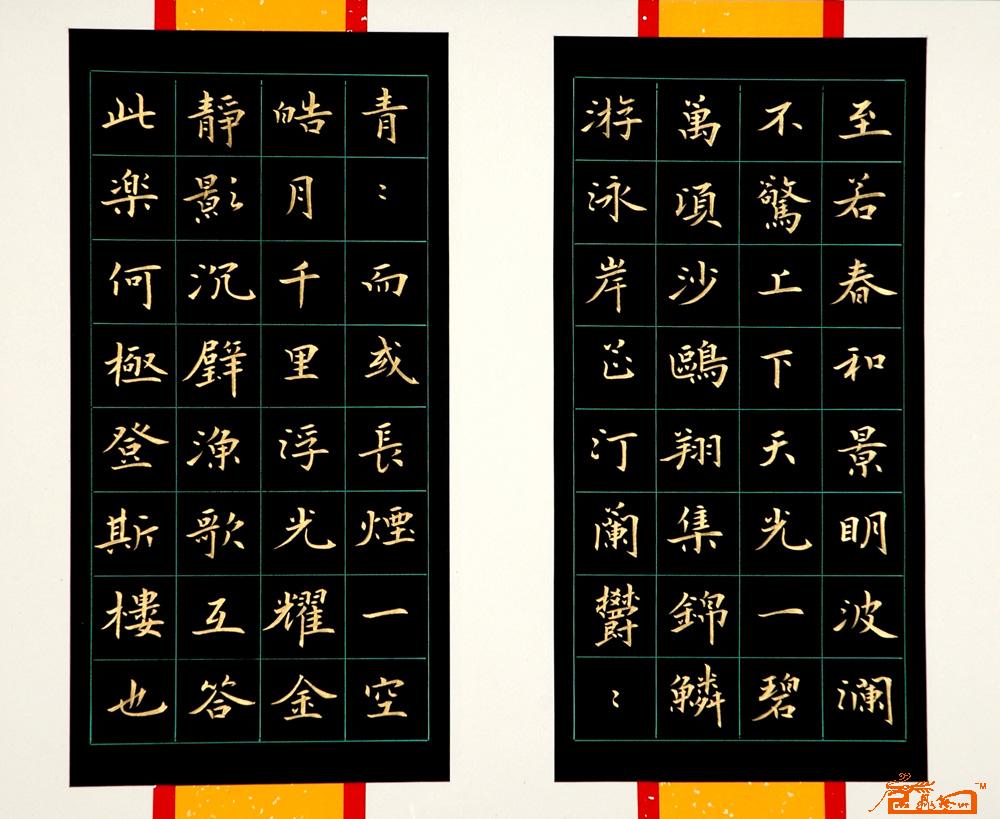 至若春和景明波澜
不驚上下天光一碧
萬頃沙鷗翔集錦鱗
游泳岸芷汀蘭鬱〻
青〻而或長煙一空
皓月千里浮光耀金
靜影沉璧漁歌互答
此楽何極登斯樓也